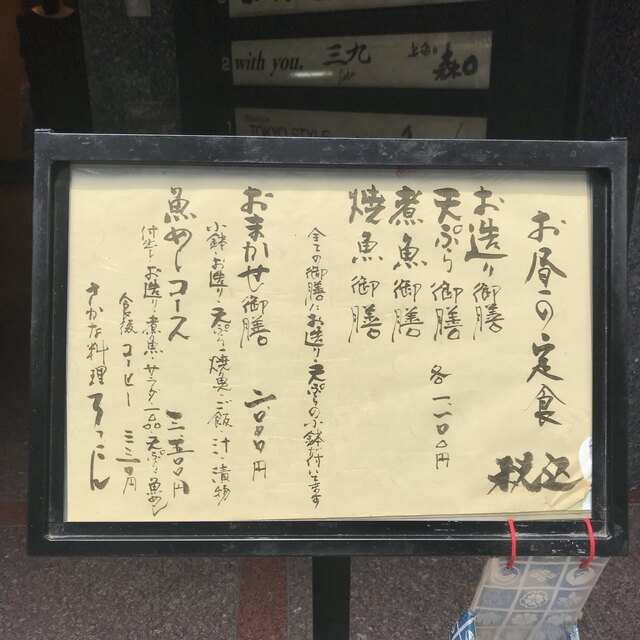 with you. 三九 森口
TOKYO STYLE
お昼の定食
税込
お造り御膳
天ぷら御膳 各一、一〇〇円
煮魚御膳
焼魚御膳
全ての御膳にお造り・天ぷらの小鉢が付いてます
おまかせ御膳 二、〇〇〇円
小鉢・お造り・天ぷら・焼魚・ご飯・汁・漬物
魚めしコース 三、五〇〇円
付出し・お造り・煮魚・サラダ・一品・天ぷら・魚めし
食後 コーヒー 三三〇円
さかな料理 ろっこん